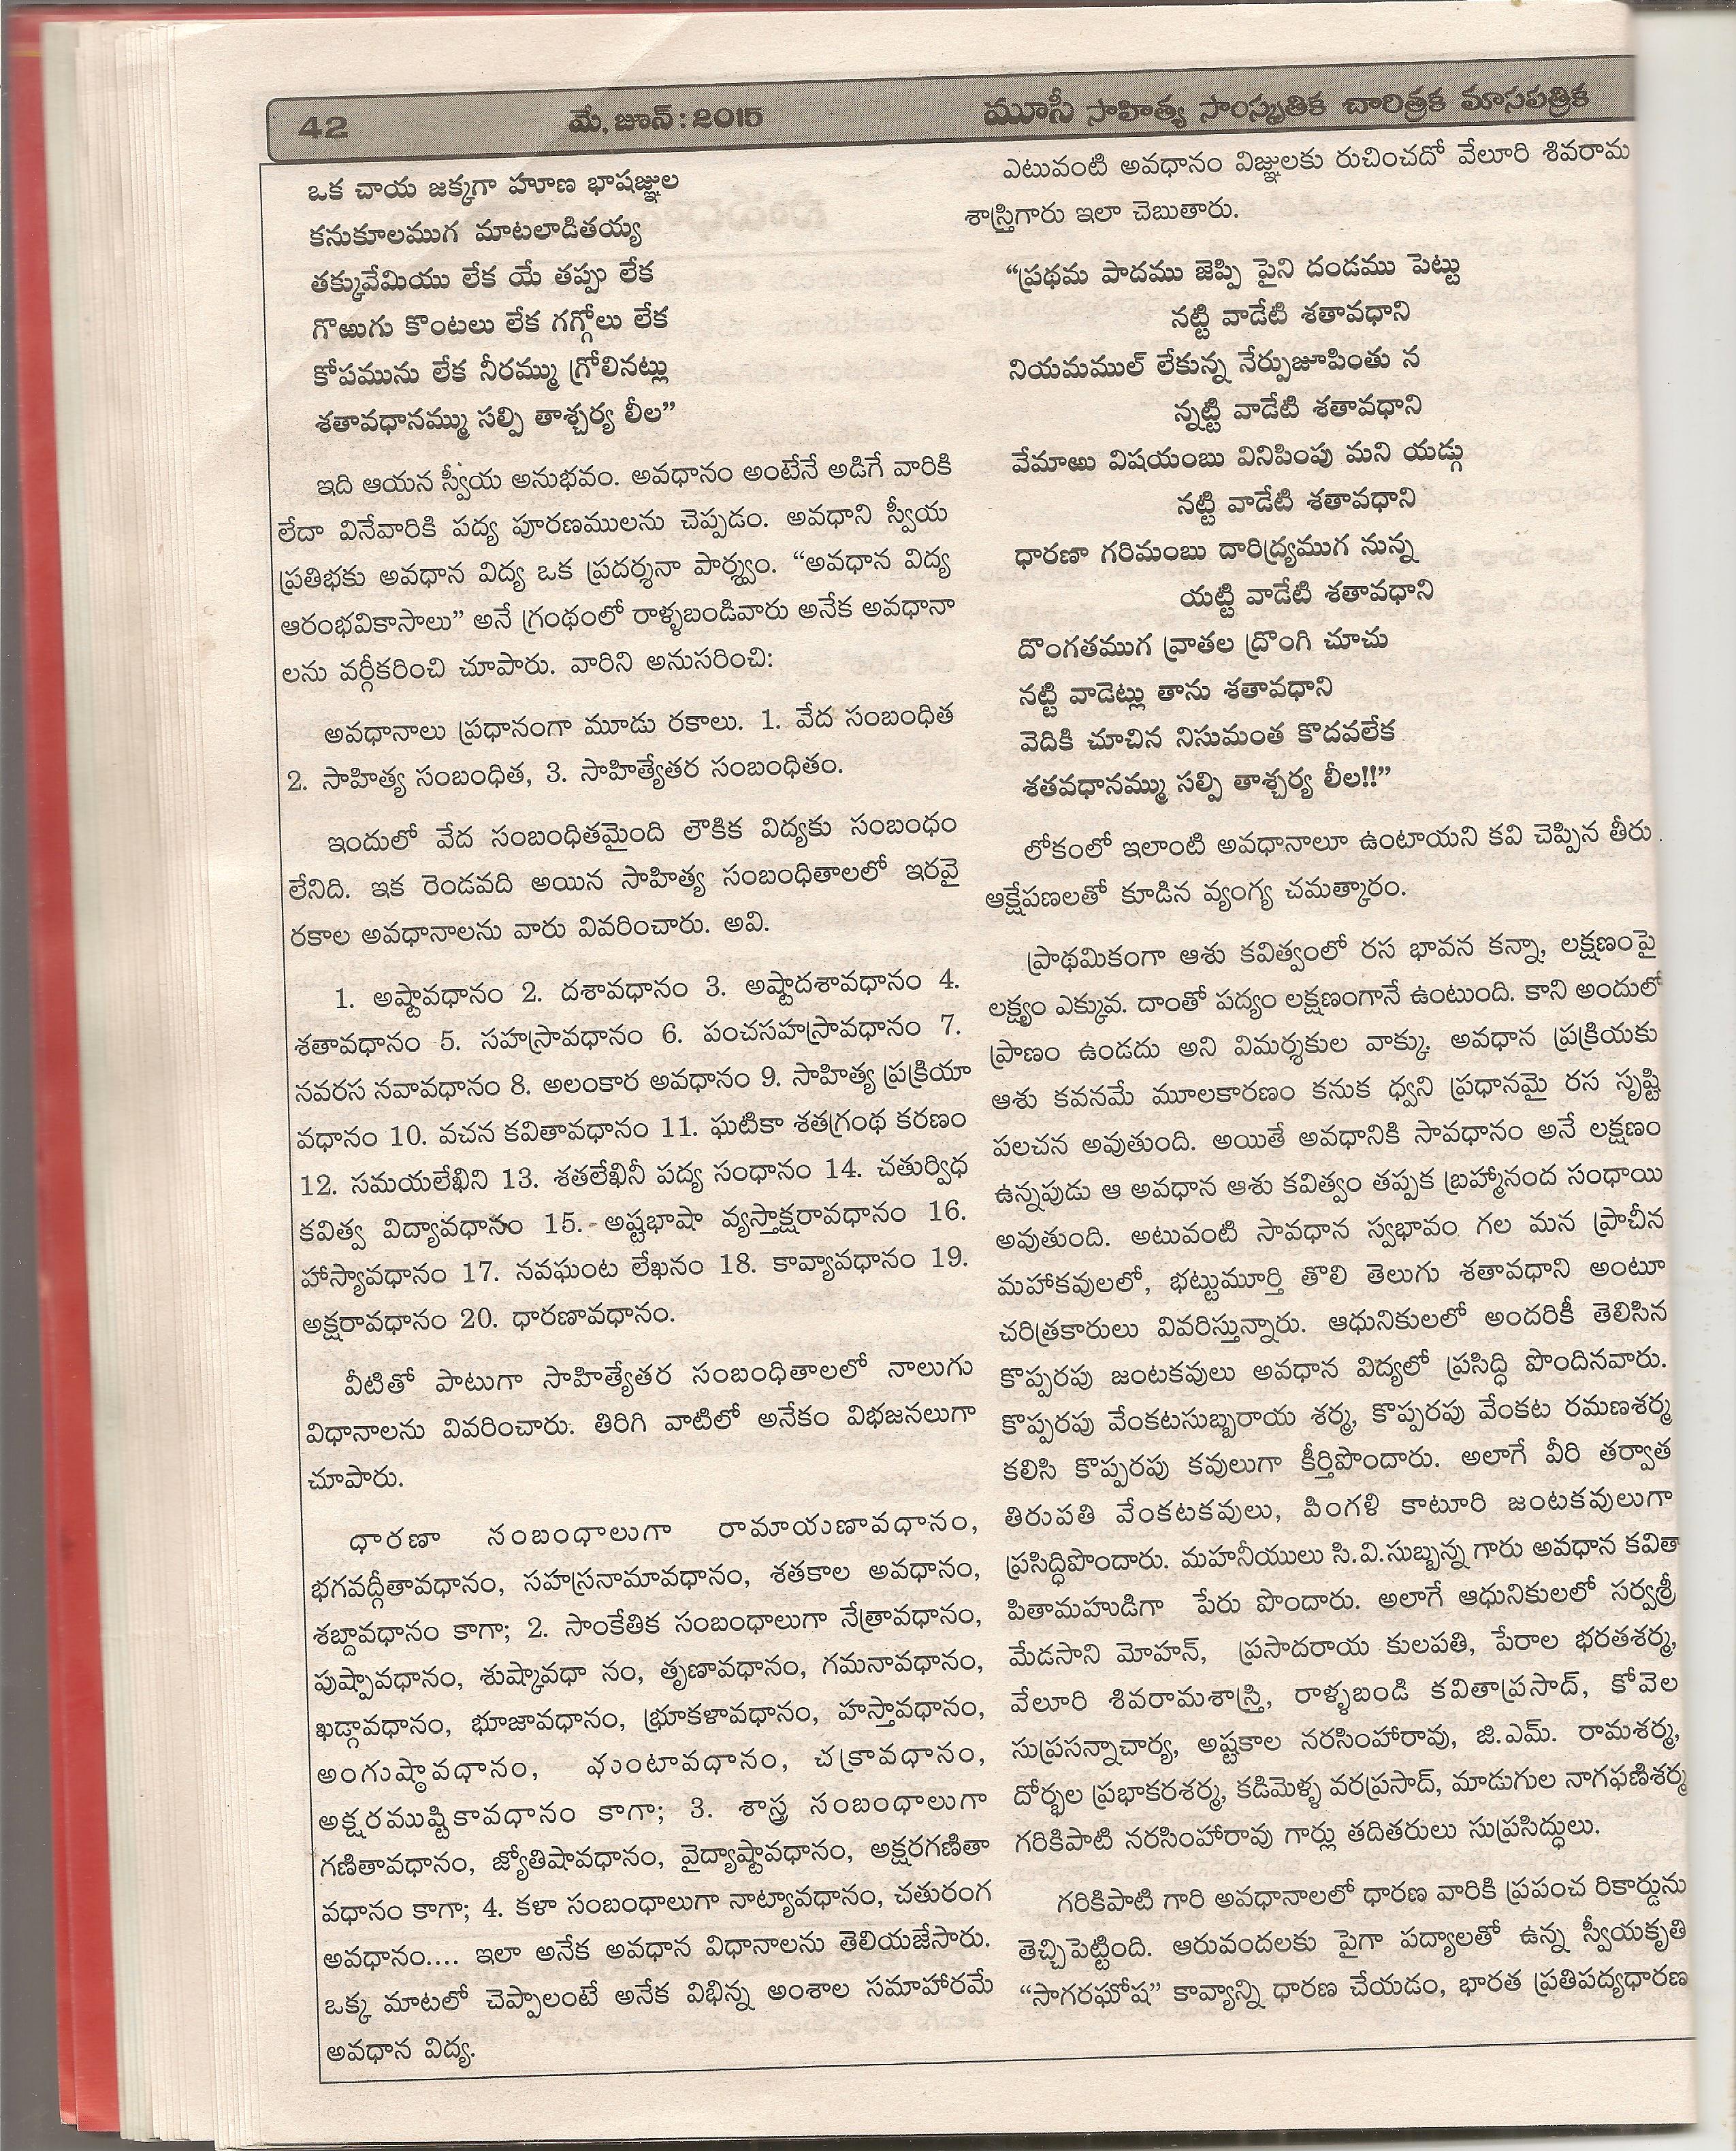 42
మే, జూన్ : 2015
మూసీ సాహిత్య సాంస్కృతిక చారిత్రక మాసపత్రిక
ఒక చాయ జక్కగా హూణ భాషజ్ఞుల
కనుకూలముగ మాటలాడితయ్య
తక్కువేమియు లేక యే తప్పు లేక
గొఱుగు కొంటలు లేక గగ్గోలు లేక
కోపమును లేక నీరమ్ము గ్రోలినట్లు
శతావధానమ్ము సల్పి తాశ్చర్య లీల”
ఇది ఆయన స్వీయ అనుభవం. అవధానం అంటేనే అడిగే వారికి
లేదా వినేవారికి పద్య పూరణములను చెప్పడం. అవధాని స్వీయ
ప్రతిభకు అవధాన విద్య ఒక ప్రదర్శనా పార్శ్వం. “అవధాన విద్య
ఆరంభవికాసాలు” అనే గ్రంథంలో రాళ్ళబండివారు అనేక అవధానా
లను వర్గీకరించి చూపారు. వారిని అనుసరించి:
అవధానాలు ప్రధానంగా మూడు రకాలు. 1. వేద సంబంధిత
2. సాహిత్య సంబంధిత, 3. సాహిత్యేతర సంబంధితం.
ఇందులో వేద సంబంధితమైంది లౌకిక విద్యకు సంబంధం
లేనిది. ఇక రెండవది అయిన సాహిత్య సంబంధితాలలో ఇరవై
రకాల అవధానాలను వారు వివరించారు. అవి.
1. అష్టావధానం 2. దశావధానం 3. అష్టాదశావధానం 4.
శతావధానం 5. సహస్రావధానం 6. పంచసహస్రావధానం 7.
నవరస నవావధానం 8. అలంకార అవధానం 9. సాహిత్య ప్రక్రియా
వధానం 10. వచన కవితావధానం 11. ఘటికా శతగ్రంథ కరణం
12. సమయలేఖిని 13. శతలేఖినీ పద్య సంధానం 14. చతుర్విధ
కవిత్వ విద్యావధానం 15. అష్టభాషా వ్యస్తాక్షరావధానం 16.
హాస్యావధానం 17. నవఘంట లేఖనం 18. కావ్యావధానం 19.
అక్షరావధానం 20. ధారణావధానం.
వీటితో పాటుగా సాహిత్యేతర సంబంధితాలలో నాలుగు
విధానాలను వివరించారు. తిరిగి వాటిలో అనేకం విభజనలుగా
చూపారు.
ధారణా సంబంధాలుగా రామాయణావధానం,
భగవద్గీతావధానం, సహస్రనామావధానం, శతకాల అవధానం,
శబ్దావధానం కాగా; 2. సాంకేతిక సంబంధాలుగా నేత్రావధానం,
పుష్పావధానం, శుష్కావధా నం, తృణావధానం, గమనావధానం,
ఖడ్గావధానం, భూజావధానం, భ్రూకళావధానం, హస్తావధానం,
అంగుష్ఠావధానం, ఘంటావధానం, చక్రావధానం,
అక్షరముష్టికావధానం కాగా; 3. శాస్త్ర సంబంధాలుగా
గణితావధానం, జ్యోతిషావధానం, వైద్యాష్టావధానం, అక్షరగణితా
వధానం కాగా; 4. కళా సంబంధాలుగా నాట్యావధానం, చతురంగ
అవధానం.... ఇలా అనేక అవధాన విధానాలను తెలియజేసారు.
ఒక్క మాటలో చెప్పాలంటే అనేక విభిన్న అంశాల సమాహారమే
అవధాన విద్య.
ఎటువంటి అవధానం విజ్ఞులకు రుచించదో వేలూరి శివరామ
శాస్త్రిగారు ఇలా చెబుతారు.
“ప్రథమ పాదము జెప్పి పైని దండము పెట్టు
నట్టి వాడేటి శతావధాని
నియమముల్ లేకున్న నేర్పుజూపింతు న
న్నట్టి వాడేటి శతావధాని
వేమాఱు విషయంబు వినిపింపు మని యడ్గు
నట్టి వాడేటి శతావధాని
ధారణా గరిమంబు దారిద్ర్యముగ నున్న
యట్టి వాడేటి శతావధాని
దొంగతముగ వ్రాతల ద్రొంగి చూచు
నట్టి వాడెట్లు తాను శతావధాని
వెదికి చూచిన నిసుమంత కొదవలేక
శతవధానమ్ము సల్పి తాశ్చర్య లీల!!”
లోకంలో ఇలాంటి అవధానాలూ ఉంటాయని కవి చెప్పిన తీరు
ఆక్షేపణలతో కూడిన వ్యంగ్య చమత్కారం.
ప్రాథమికంగా ఆశు కవిత్వంలో రస భావన కన్నా, లక్షణంపై
లక్ష్యం ఎక్కువ. దాంతో పద్యం లక్షణంగానే ఉంటుంది. కాని అందులో
ప్రాణం ఉండదు అని విమర్శకుల వాక్కు. అవధాన ప్రక్రియకు
ఆశు కవనమే మూలకారణం కనుక ధ్వని ప్రధానమై రస సృష్టి
పలచన అవుతుంది. అయితే అవధానికి సావధానం అనే లక్షణం
ఉన్నపుడు ఆ అవధాన ఆశు కవిత్వం తప్పక బ్రహ్మానంద సంధాయి
అవుతుంది. అటువంటి సావధాన స్వభావం గల మన ప్రాచీన
మహాకవులలో, భట్టుమూర్తి తొలి తెలుగు శతావధాని అంటూ
చరిత్రకారులు వివరిస్తున్నారు. ఆధునికులలో అందరికీ తెలిసిన
కొప్పరపు జంటకవులు అవధాన విద్యలో ప్రసిద్ధి పొందినవారు.
కొప్పరపు వేంకటసుబ్బరాయ శర్మ, కొప్పరపు వేంకట రమణశర్మ
కలిసి కొప్పరపు కవులుగా కీర్తిపొందారు. అలాగే వీరి తర్వాత
తిరుపతి వేంకటకవులు, పింగళి కాటూరి జంటకవులుగా
ప్రసిద్ధిపొందారు. మహనీయులు సి.వి.సుబ్బన్న గారు అవధాన కవితా
పితామహుడిగా పేరు పొందారు. అలాగే ఆధునికులలో సర్వశ్రీ
మేడసాని మోహన్, ప్రసాదరాయ కులపతి, పేరాల భరతశర్మ,
వేలూరి శివరామశాస్త్రి, రాళ్ళబండి కవితాప్రసాద్, కోవెల
సుప్రసన్నాచార్య, అష్టకాల నరసింహారావు, జి.ఎమ్. రామశర్మ,
దోర్భల ప్రభాకరశర్మ, కడిమెళ్ళ వరప్రసాద్, మాడుగుల నాగఫణిశర్మ
గరికిపాటి నరసింహారావు గార్లు తదితరులు సుప్రసిద్ధులు.
గరికిపాటి గారి అవధానాలలో ధారణ వారికి ప్రపంచ రికార్డును
తెచ్చిపెట్టింది. ఆరువందలకు పైగా పద్యాలతో ఉన్న స్వీయకృతి
“సాగరఘోష” కావ్యాన్ని ధారణ చేయడం, భారత ప్రతిపద్యధారణ